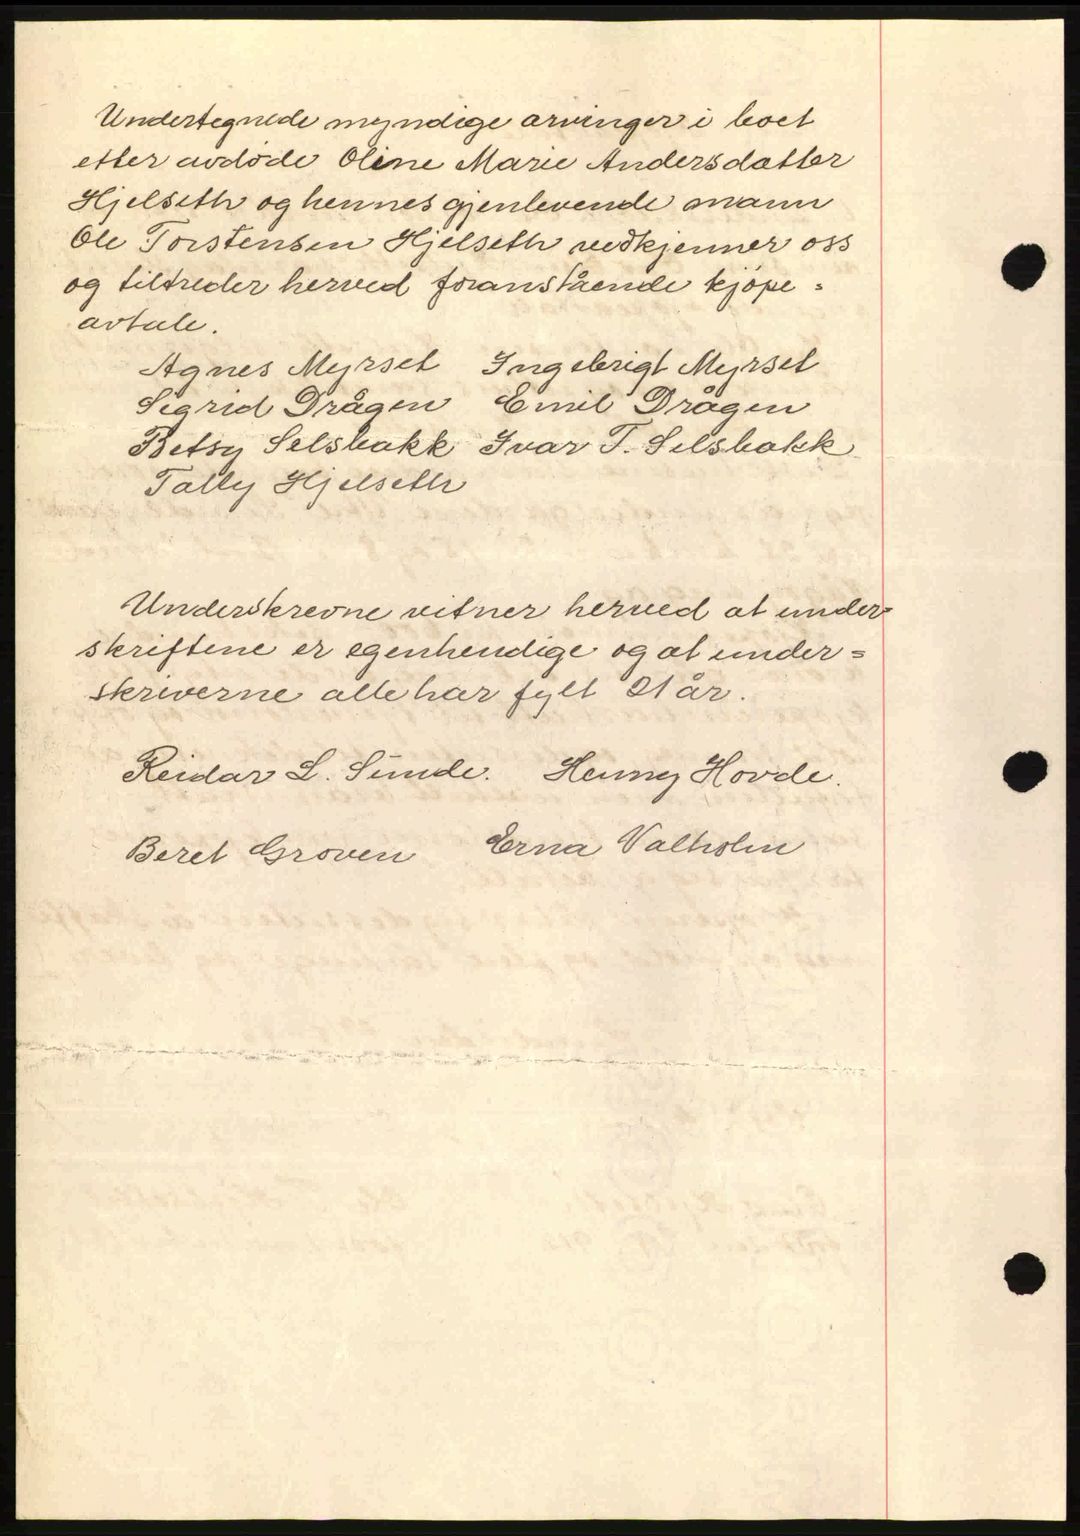 Undertegnede myndige arvinger i boet
etter avdøde Oline Marie Andersdatter
Hjelseth og hennes gjenlevende mann
Ole Torstensen Hjelseth vedkjenner oss
og tiltreder herved foranstående kjøpe =
avtale.
Agnes Myrset Ingebrigt Myrset
Sigrid Drågen Emil Drågen
Betsy Selsbakk Ivar T. Selsbakk
Tally Hjelseth
Underskrevne vitner herved at under=
skriftene er egenhendige og at under=
skriverne alle har fylt 21 år.
Reidar L. Sunde. Henny Hovde.
Beret Groven Erna Valholm